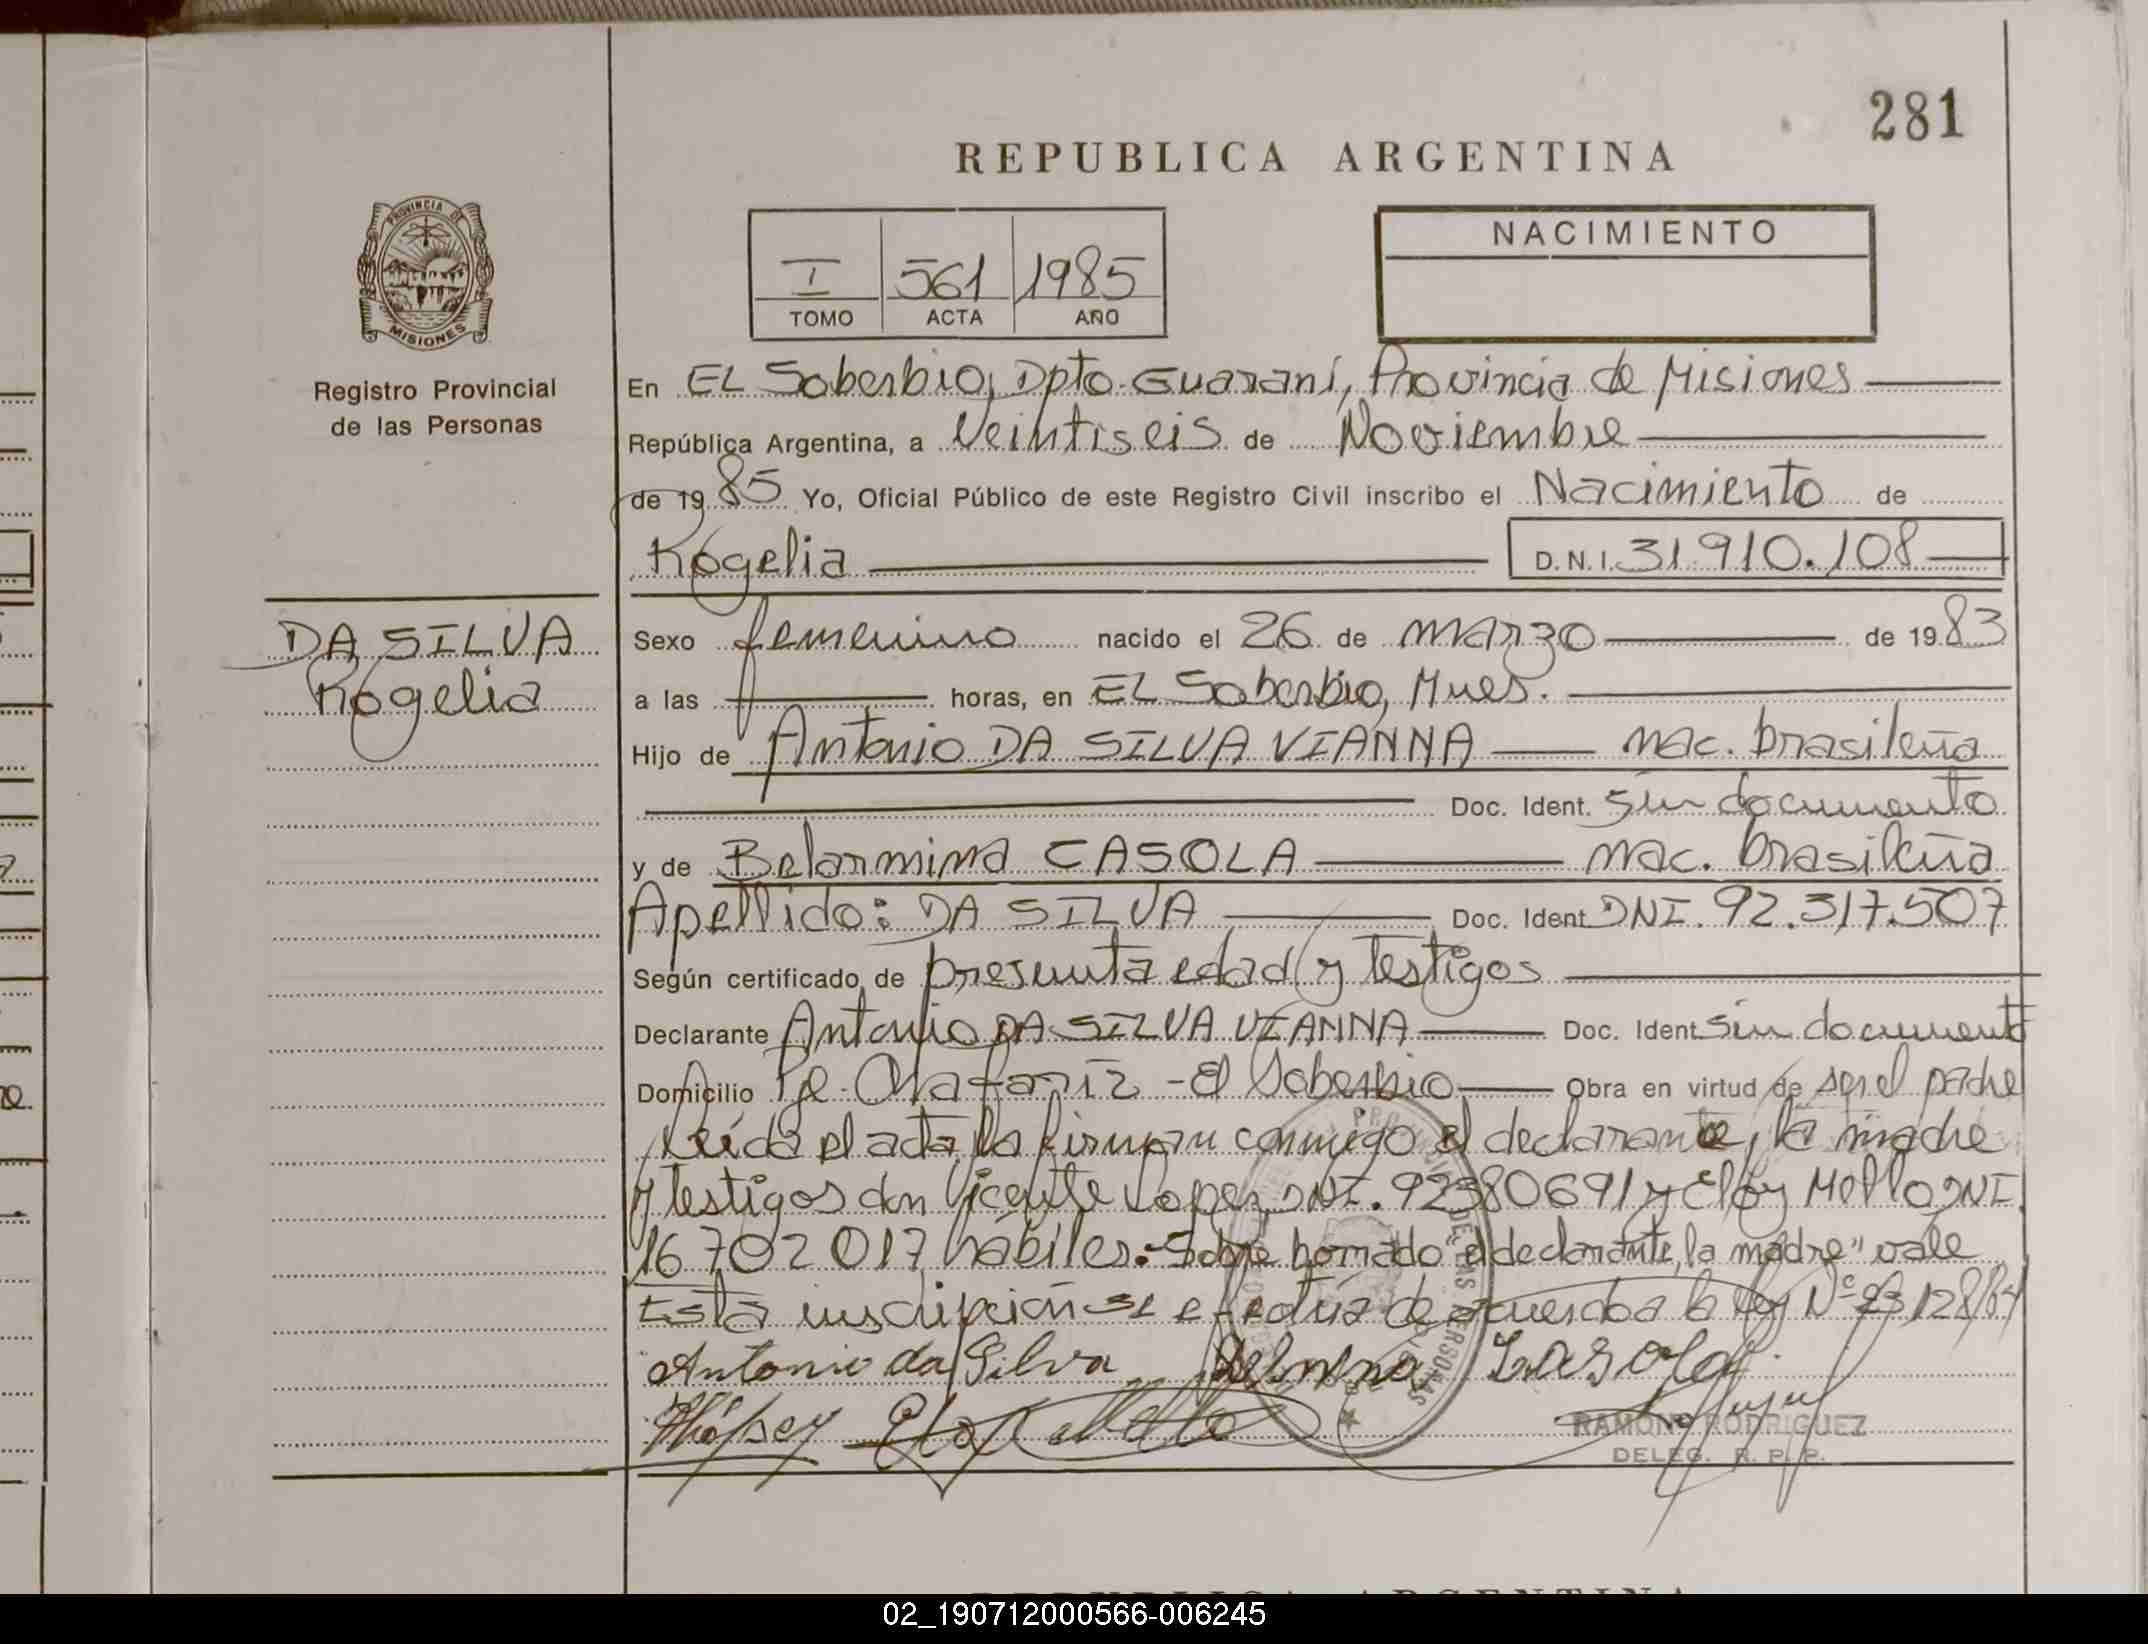 281
REPUBLICA ARGENTINA
PROVINCIA DE
MISIONES
Registro Provincial
de las Personas
I 561 1985
TOMO ACTA AÑO
NACIMIENTO
En El Soberbio, Dpto. Guaraní, Provincia de Misiones
República Argentina, a Veintiseis de Noviembre
de 1985 Yo, Oficial Público de este Registro Civil inscribo el Nacimiento de
Rogelia D.N.I. 31.910.108
DA SILVA
Rogelia
Sexo femenino nacido el 26 de marzo de 1983
a las horas, en El Soberbio, Mnes.
Hijo de Antonio DA SILVA VIANNA nac. brasileña
Doc. Ident. sin documento
y de Belarmina CASOLA nac. brasileña
Apellido: DA SILVA Doc. Ident. DNI. 92.317.507
Según certificado de presunta edad y testigos
Declarante Antonio DA SILVA VIANNA Doc. Ident. sin documento
Domicilio Pje. - El Soberbio Obra en virtud de ser el padre
Leída el acta, la firman conmigo el declarante, la madre
y testigos don Vicente Lopez, DNI. 92380691 y Eloy Mello DNI
16 702 017 hábiles.- Sobre borrado "el declarante, la madre" vale
Esta inscripción se efectúa de acuerdo a la ley Nº 23128/84
Antonio da Silva Casola
Eloy Mello
RAMON RODRIGUEZ
DELEG. R. P. P.
REPUBLICA ARGENTINA
02_190712000566-006245